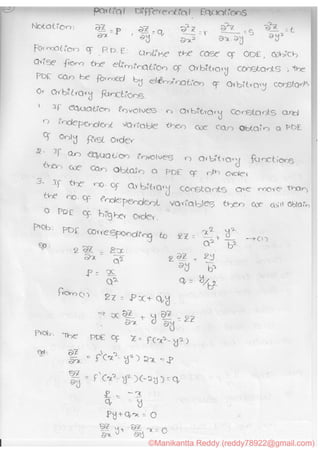 Partial Differential Equations
Notation: ∂z/∂x = p , ∂z/∂y = q, ∂²z/∂x² = r , ∂²z/∂x ∂y = s ∂²z/∂y² = t
Formation of P.D.E: unlike the case of ODE, which
arise from the elimination of arbitrary constants, the
PDE can be formed by elimination of arbitrary constants
or arbitrary functions.
1. If equation involves n arbitrary constants and
n independent variable then we can obtain a PDE
of only first order
2. If an equation involves n arbitrary functions
then we can obtain a PDE of nth order
3. If the no of arbitrary constants are more than
the no of independent variables then we will obtain
a PDE of higher order.
Prob: PDE corresponding to 2z = x²/a² + y²/b² → (1)
2 ∂z/∂x = 2x/a² 2 ∂z/∂y = 2y/b²
p = x/a² q = y/b²
from (1) 2z = px + qy
⇒ x ∂z/∂x + y ∂z/∂y = 2z
Prob: The PDE of z = f(x²-y²)
∂z/∂x = f'(x²-y²) 2x = p
∂z/∂y = f'(x²-y²)(-2y) = q
p/q = -x/y
py + qx = 0
∂z/∂x y + ∂z/∂y x = 0
©Manikantta Reddy (reddy78922@gmail.com)